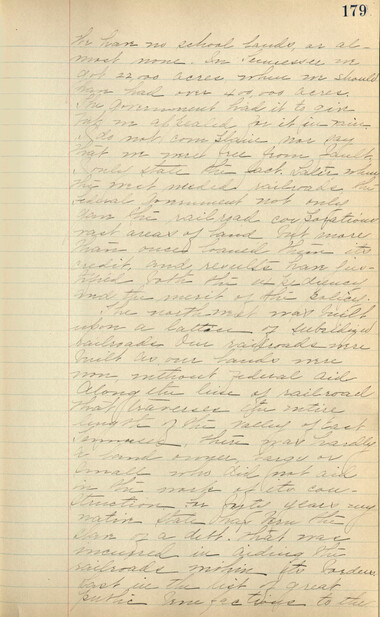 179
We have no school lands, or al-
most none. In Tennessee we
got 2200 acres when we should
have had over 400,000 acres.
The government had it to give
but we appealed for it in vain.
I do not complain, nor say
that we were free from fault,
I only state the fact. Later when
the west needed railroads, the
Federal government not only
gave the railroad corporations
vast areas of land but more
than once loaned them its
credit, and results have jus-
tified both the expediency
and the merit of the policy.
The northwest was built
upon a lattice of subsidized
railroads. Our railroads were
built as our lands were
won, without Federal aid.
Along the line of railroad
that traverses the entire
length of the valley of East
Tennessee, there was hardly
a land owner, large or
small who did not aid
in the work of its con-
struction. For forty years my
native state has borne the
load of a debt that was
incurred in aiding the
railroads within its borders.
Last in the list of great
public benefactions to the